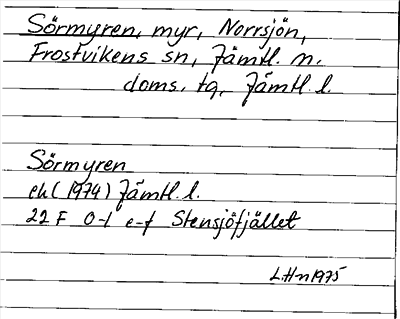 Sörmyren, myr, Norrsjön,
Frostvikens sn, Jämtl. n.
doms. tg, Jämtl. l.
Sörmyren
ek (1974) Jämtl. l.
22 F 0-1 e-f Stensjöfjället
L.H-n 1975